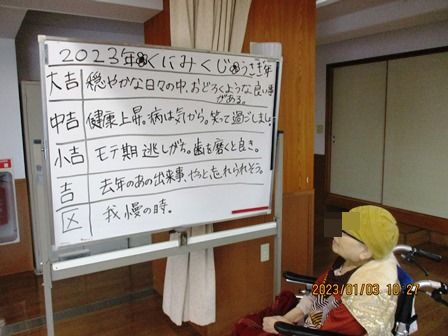 2023年㊗くにみくじ㊗うさぎ年
大吉 穏やかな日々の中、おどろくような良い事
がある。
中吉 健康上昇。病は気から。笑って過ごしましょ。
小吉 モテ期逃しがち。歯を磨くと良き。
吉 去年のあの出来事、やっと忘れられそう。
区 我慢の時。
2023/01/03 10:27